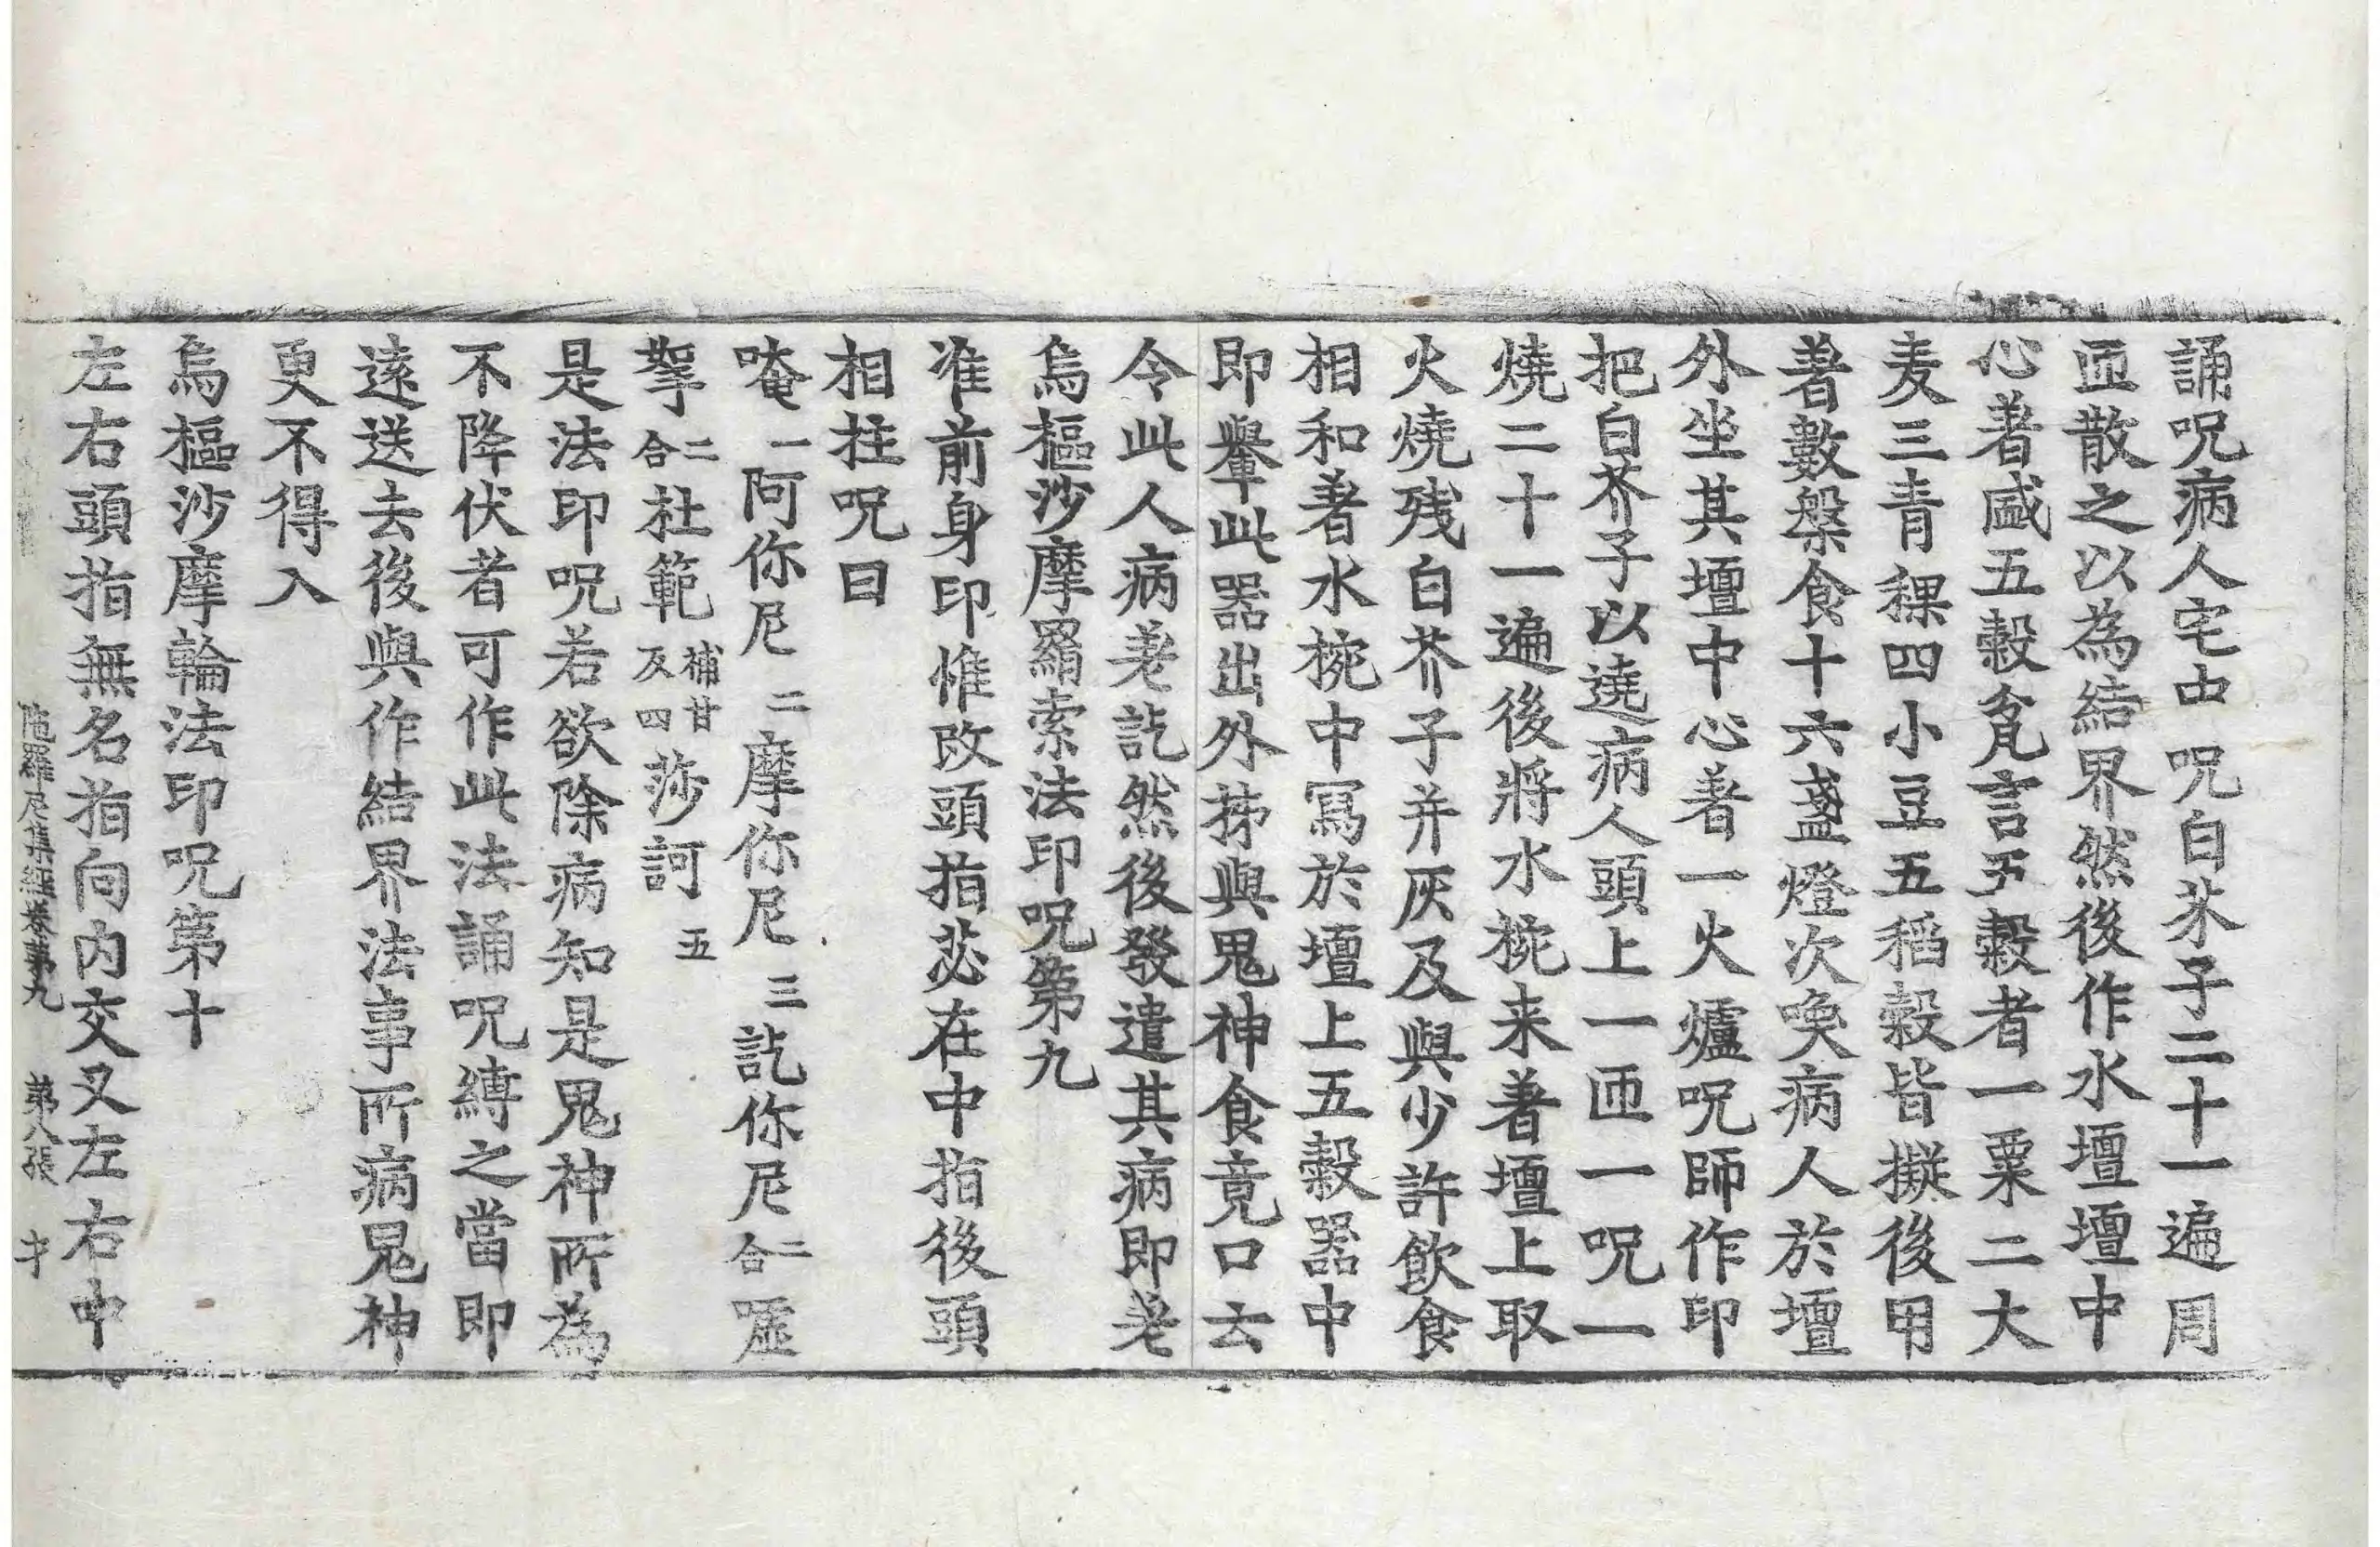 誦呪病人宅中呪白芥子二十一遍周
匝散之以為結界然後作水壇壇中
心著盛五穀瓮言五穀者一粟二大
麦三青稞四小豆五稻穀皆擬後用
著數槃食十六盞燈次喚病人於壇
外坐其壇中心著一火爐呪師作印
把白芥子以遶病人頭上一匝一呪一
燒二十一遍後將水椀来著壇上取
火燒残白芥子并灰及與少許飲食
相和著水椀中寫於壇上五穀器中
即轝此器出外㧊與鬼神食竟口云
令此人病差訖然後發遣其病即差
烏樞沙摩羂索法印呪第九
准前身印惟改頭指苾在中指後頭
相拄呪曰
唵一阿你尼二摩你尼三訖你尼二合㖶
拏二合社範補甘反四莎訶五
是法印呪若欲除病知是鬼神所為
不降伏者可作此法誦呪縛之當即
遠送去後與作結界法事所病鬼神
更不得入
烏樞沙摩輪法印呪第十
左右頭指無名指向内交叉左右中
陁羅尼集経卷第九 第八張 才